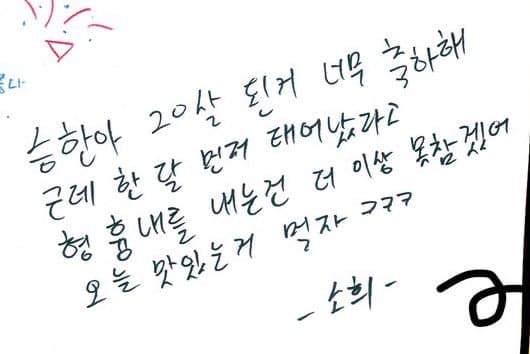 승한아 20살 된거 너무 축하해
근데 한 달 먼저 태어났라고
형 흉내를 내는건 더 이상 못참겠어
오늘 맛있는거 먹자 ㅋㅋㅋ
- 소희 -